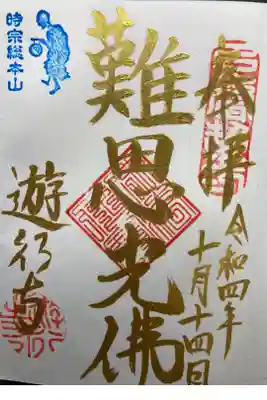 奉拝
令和四年
十月十四日
難思光佛
時宗総本山
遊行寺